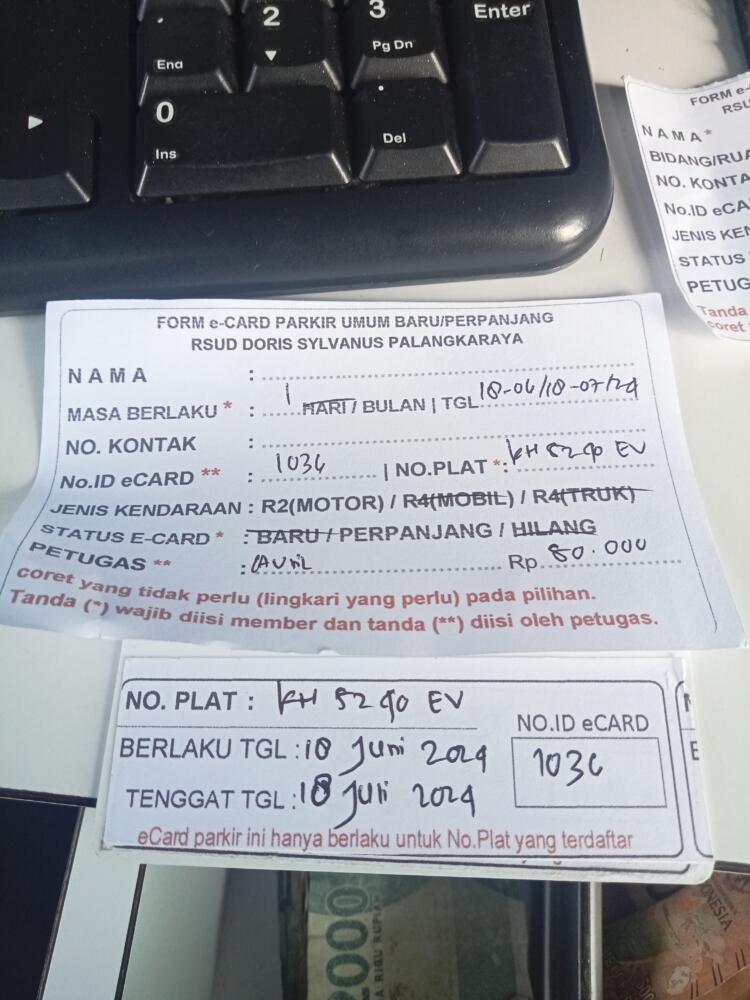 2
3
Enter
.
End
▼
Pg Dn
0
.
Ins
Del
FORM e-
RSU
NAMA*
BIDANG/RUA
NO. KONTA
No.ID eCA
JENIS KEN
STATUS
PETUG
Tanda
coret
FORM e-CARD PARKIR UMUM BARU/PERPANJANG
RSUD DORIS SYLVANUS PALANGKARAYA
NAMA :
MASA BERLAKU * : 1 HARI / BULAN | TGL 18-06/18-07/24
NO. KONTAK :
No.ID eCARD ** : 1036 | NO.PLAT *: KH 5290 EV
JENIS KENDARAAN : R2(MOTOR) / R4(MOBIL) / R4(TRUK)
STATUS E-CARD * : BARU / PERPANJANG / HILANG
PETUGAS ** : Rp 80.000
coret yang tidak perlu (lingkari yang perlu) pada pilihan.
Tanda (*) wajib diisi member dan tanda (**) diisi oleh petugas.
NO. PLAT : KH 5290 EV
NO.ID eCARD
BERLAKU TGL : 18 Juni 2024
1036
TENGGAT TGL : 18 Juli 2024
eCard parkir ini hanya berlaku untuk No.Plat yang terdaftar
000
RIBU RUPIAH